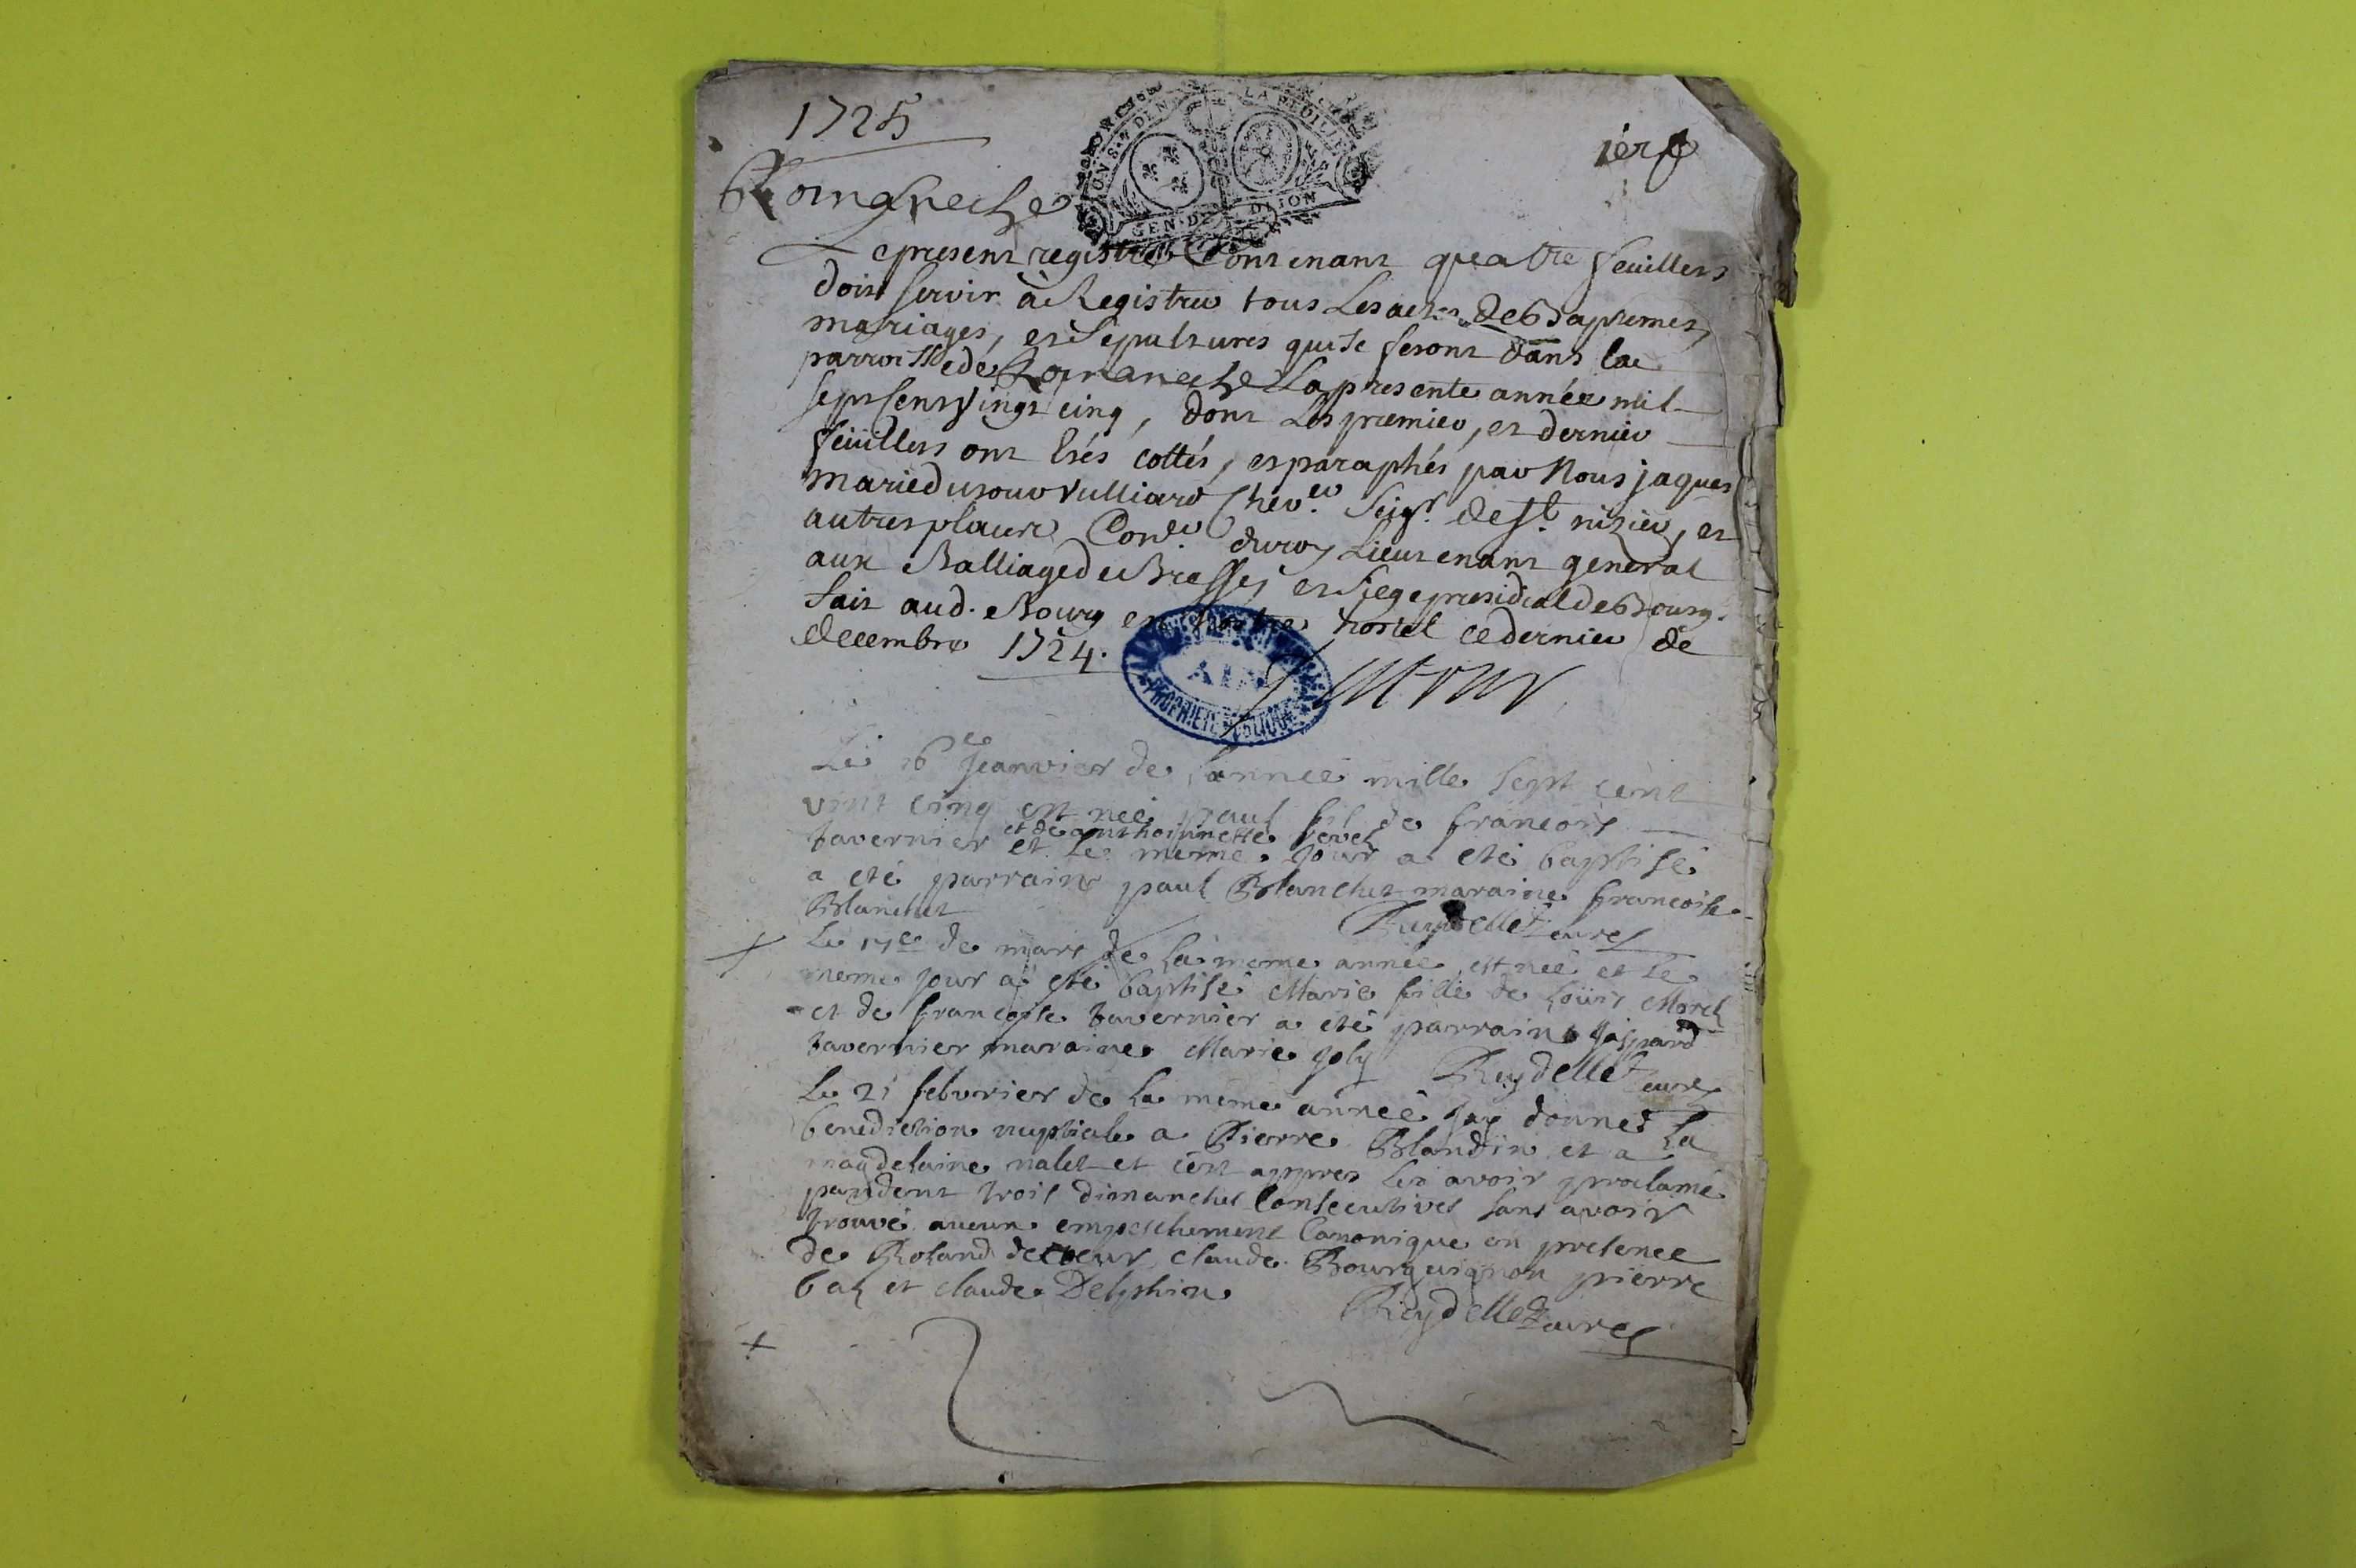 1725
1er f
Romaneche
GEN. DE DIJON
Le present registre Contenant quatre feuillets
doit servir à Registrer tous Les actes de Baptemes,
mariages, et Sepultures qui se feront dans la
parroisse de Romaneche La presente année mil
sept Cent Vingt cinq, dont Les premier, et dernier
feüillets ont êtés cottés, et paraphés par Nous jaques
marie dutour Vulliard Chev.er Seigr. de St. nizier, et
autres places Con.er du roy Lieutenant general
aux Balliage de Bresse, et Siege presidial de Bourg.
fait aud. Bourg en nostre hostel ce dernier de
decembre 1724.
Dutour
AIN
PROPRIETE PUBLIQUE
Le 16 Jeanvier de l'anneé mille sept cent
vint cinq est neé paul fil de francois
et de anthoinette
tavernier et le meme jour a eté baptisé
a eté parrain paul Blanchet maraine francoise
Blanchet
Reydellet curé
Le 17e de mars de la meme anneé est neé et le
meme jour a eté baptisé Marie fille de Loüis Morel
et de francoise tavernier a eté parrain gaspard
tavernier maraine Marie joly
Reydellet curé
Le 21 febvrier de la meme anneé jay donné la
benediction nuptiale a Pierre Blandin et a la
magdelaine nalet et cest appres les avoir proclamé
pandent trois dimanches consecutives sans avoir
trouvé aucun empeschement Canonique en presence
de Roland decoeur claude Bourguignon pierre
baz et claude Delphin
Reydellet curé